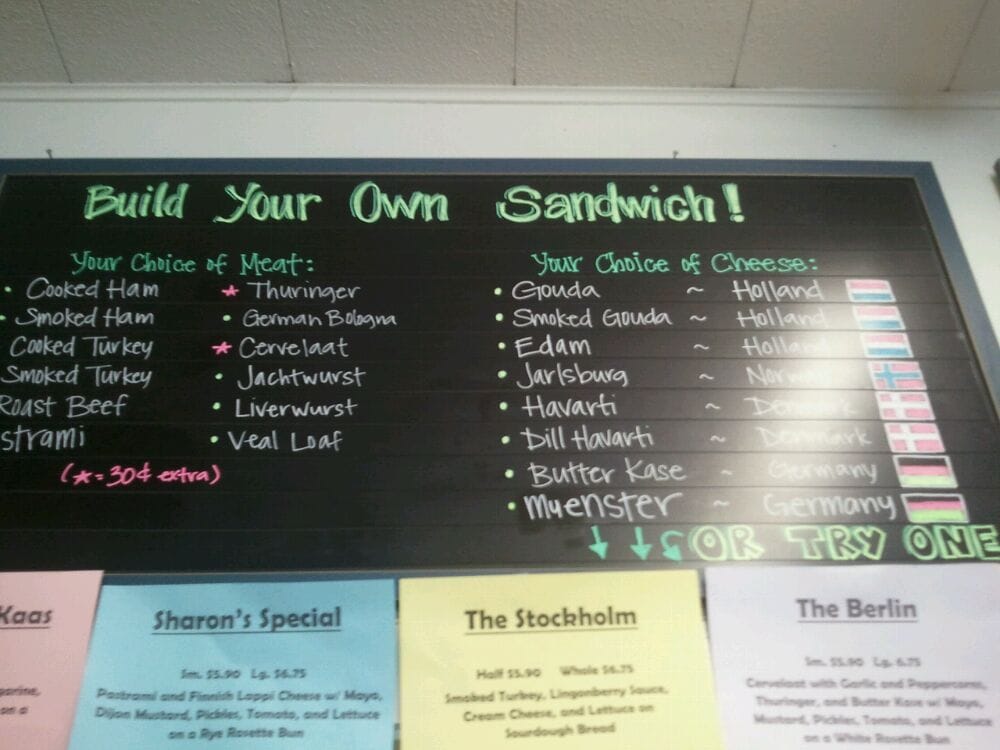 Build Your Own Sandwich!
Your Choice of Meat:
• Cooked Ham
• Smoked Ham
Cooked Turkey
Smoked Turkey
Roast Beef
strami
* Thuringer
• German Bologna
* Cervelaat
• Jachtwurst
• Liverwurst
• Veal Loaf
(*=30¢ extra)
Your Choice of Cheese:
• Gouda ~ Holland
• Smoked Gouda ~ Holland
• Edam ~ Holland
• Jarlsburg ~ Norway
• Havarti ~ Denmark
• Dill Havarti ~ Denmark
• Butter Kase ~ Germany
• Muenster ~ Germany
OR TRY ONE
Kaas
on a
Sharon's Special
Sm. $5.90 Lg. $6.75
Pastrami and Finnish Lappi Cheese w/ Mayo,
Dijon Mustard, Pickles, Tomato, and Lettuce
on a Rye Rosette Bun
The Stockholm
Half $5.90 Whole $6.75
Smoked Turkey, Lingonberry Sauce,
Cream Cheese, and Lettuce on
Sourdough Bread
The Berlin
Sm. $5.90 Lg. 6.75
Cervelaat with Garlic and Peppercorns,
Thuringer, and Butter Kase w/ Mayo,
Mustard, Pickles, Tomato, and Lettuce
on a White Rosette Bun